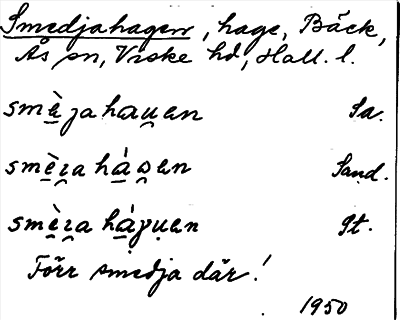 Smedjahagen, hage, Bäck,
Ås sn, Viske hd, Hall. l.
smè̱ja hau̯en Sa.
smè̱i̯a há̱o̯en Sand.
smè̱i̯a há̱gu̯en Gt.
Förr smedja där!
1950